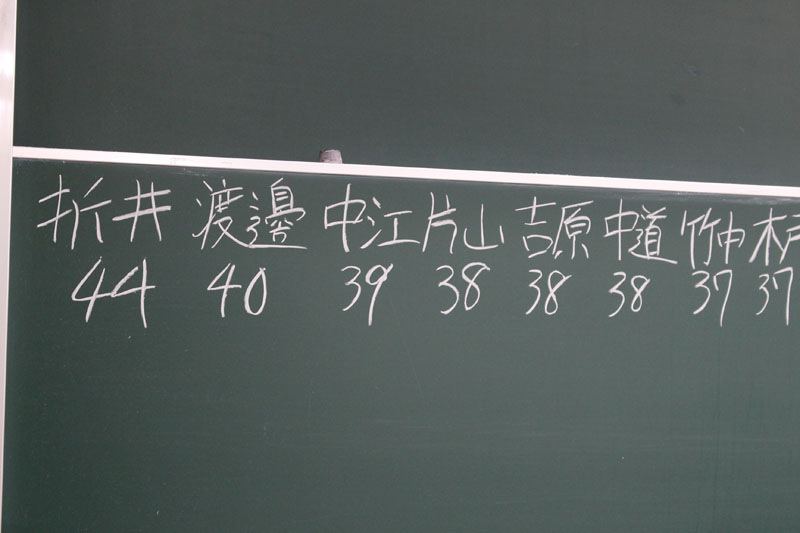 折井 渡邊 中江 片山 吉原 中道 竹中 木戸
44 40 39 38 38 38 37 37